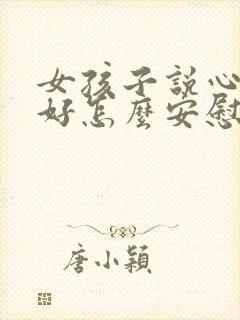 女孩子説心
好怎麼安慰
唐小穎